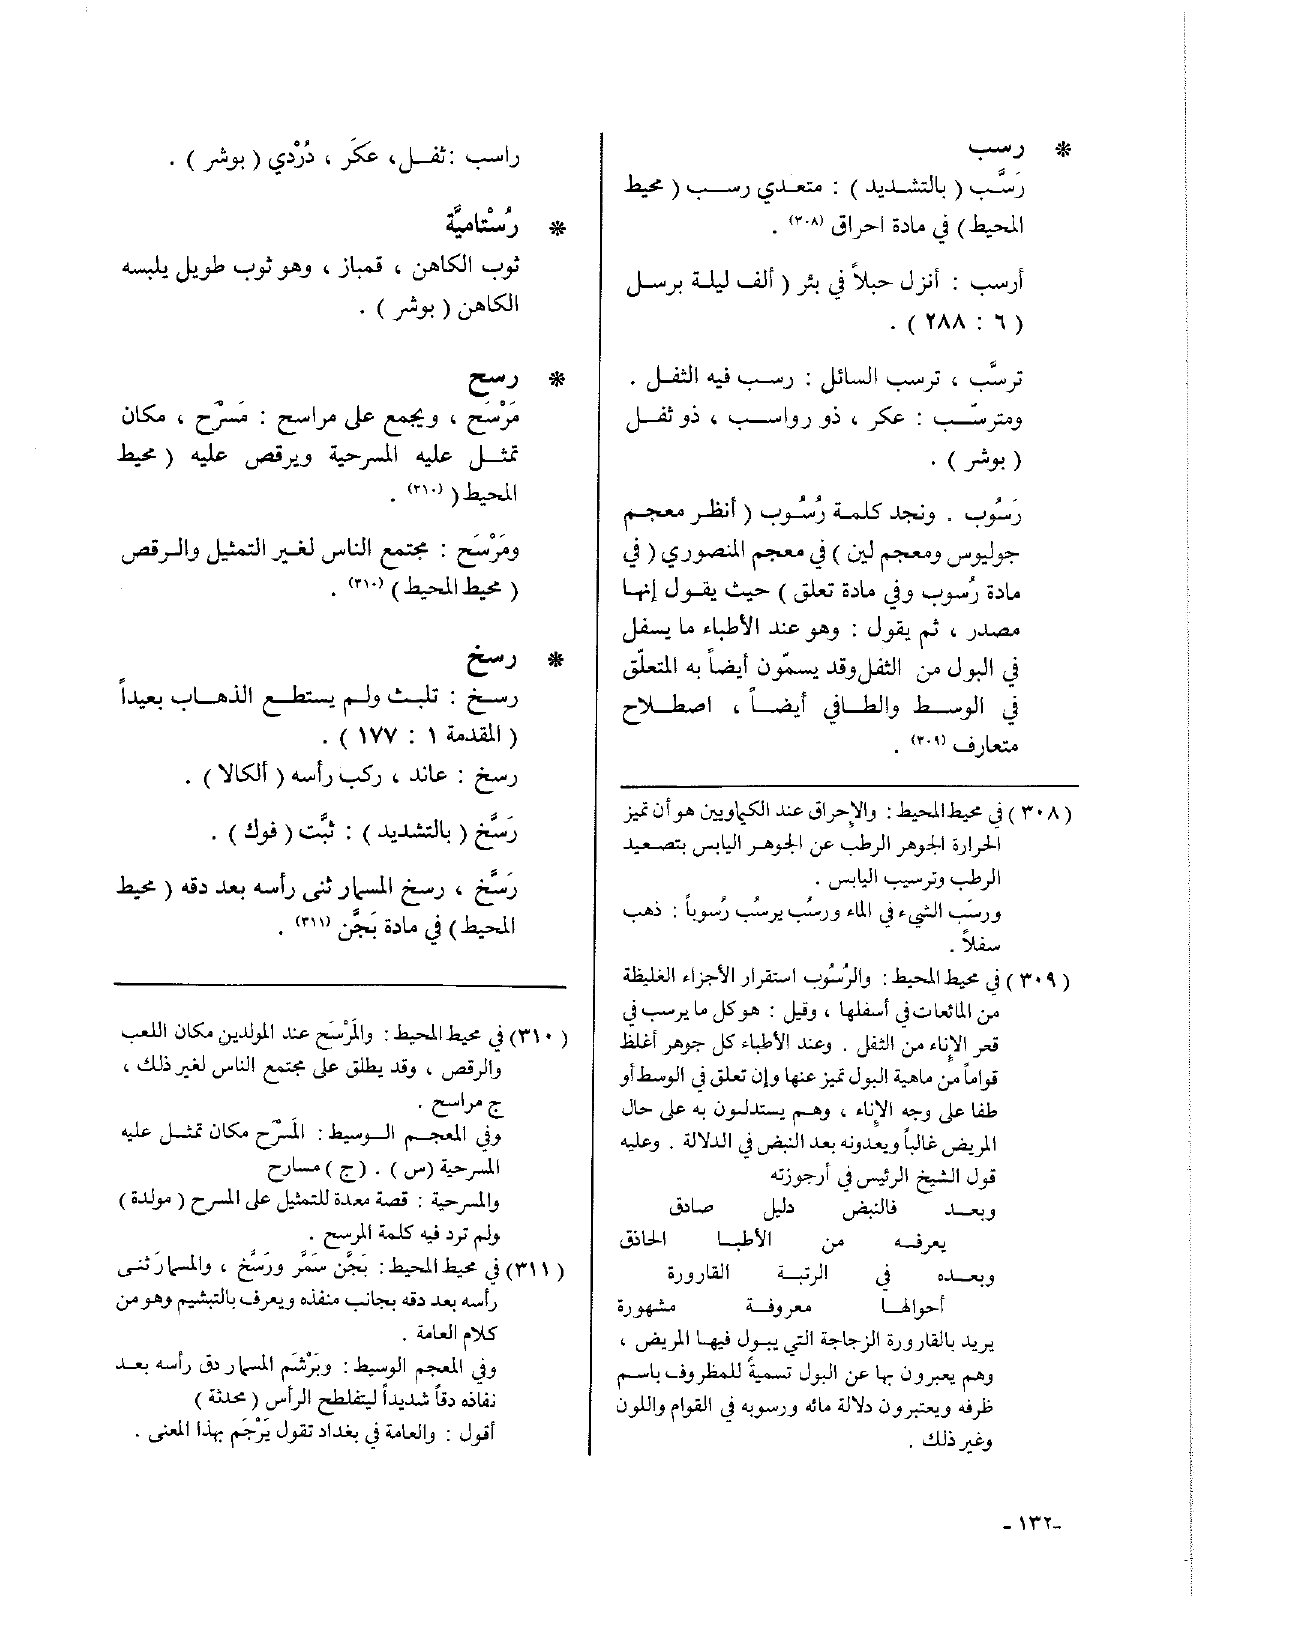 * رسب
رَسَّب ( بالتشديد ) : متعدي رسب ( محيط
المحيط ) في مادة احراق (٣٠٨) .
أرسب : أنزل حبلاً في بئر ( ألف ليلة برسل
( ٦ : ٢٨٨ ) .
ترسَّب ، ترسب السائل : رسب فيه الثفل .
ومترسّب : عكر ، ذو رواسب ، ذو ثفل
( بوشر ) .
رَسُوب . ونجد كلمة رُسُوب ( أنظر معجم
جوليوس ومعجم لين ) في معجم المنصوري ( في
مادة رُسوب وفي مادة تعلق ) حيث يقول إنها
مصدر ، ثم يقول : وهو عند الأطباء ما يسفل
في البول من الثفل وقد يسمّون أيضاً به المتعلّق
في الوسط والطافي أيضاً ، اصطلاح
متعارف (٣٠٩) .
(٣٠٨) في محيط المحيط : والإحراق عند الكياويين هو أن تميز
الحرارة الجوهر الرطب عن الجوهر اليابس بتصعيد
الرطب وترسيب اليابس .
ورسَب الشيء في الماء ورسُب يرسُب رُسوباً : ذهب
سفلاً .
(٣٠٩) في محيط المحيط : والرُسُوب استقرار الأجزاء الغليظة
من المائعات في أسفلها ، وقيل : هو كل ما يرسب في
قعر الإناء من الثفل . وعند الأطباء كل جوهر أغلظ
قواماً من ماهية البول تميز عنها وإن تعلق في الوسط أو
طفا على وجه الإناء ، وهم يستدلون به على حال
المريض غالباً ويعدونه بعد النبض في الدلالة . وعليه
قول الشيخ الرئيس في أرجوزته
وبعد فالنبض دليل صادق
يعرفه من الأطبا الحاذق
وبعده في الرتبة القارورة
أحوالها معروفة مشهورة
يريد بالقارورة الزجاجة التي يبول فيها المريض ،
وهم يعبرون بها عن البول تسميةً للمظروف باسم
ظرفه ويعتبرون دلالة مائه ورسوبه في القوام واللون
وغير ذلك .
راسب : ثفل ، عكَر ، دُرْدي ( بوشر ) .
* رُسْتاميَّة
ثوب الكاهن ، قمباز ، وهو ثوب طويل يلبسه
الكاهن ( بوشر ) .
* رسح
مَرْسَح ، ويجمع على مراسح : مَسْرَح ، مكان
تمثل عليه المسرحية ويرقص عليه ( محيط
المحيط ( (٣١٠) .
ومَرْسَح : مجتمع الناس لغير التمثيل والرقص
( محيط المحيط ) (٣١٠) .
* رسخ
رسخ : تلبث ولم يستطع الذهاب بعيداً
( المقدمة ١ : ١٧٧ ) .
رسخ : عاند ، ركب رأسه ( ألكالا ) .
رَسَّخ ( بالتشديد ) : ثبَّت ( فوك ) .
رَسَّخ ، رسخ المسمار ثنى رأسه بعد دقه ( محيط
المحيط ) في مادة بَجَّن (٣١١) .
(٣١٠) في محيط المحيط : والمَرْسَح عند المولدين مكان اللعب
والرقص ، وقد يطلق على مجتمع الناس لغير ذلك ،
ج مراسح .
وفي المعجم الوسيط : المَسْرَح مكان تمثل عليه
المسرحية (س) . (ج) مسارح
والمسرحية : قصة معدة للتمثيل على المسرح ( مولدة )
ولم ترد فيه كلمة المرسح .
(٣١١) في محيط المحيط : بَجَّن سَمَّر ورَسَّخ ، والمسمارَ ثنى
رأسه بعد دقه بجانب منفذه ويعرف بالتبشيم وهو من
كلام العامة .
وفي المعجم الوسيط : وبَرْشَم المسمار دق رأسه بعد
نفاذه دقاً شديداً ليتفلطح الرأس ( محدثة )
أقول : والعامة في بغداد تقول بَرْجَم بهذا المعنى .
-١٣٢-